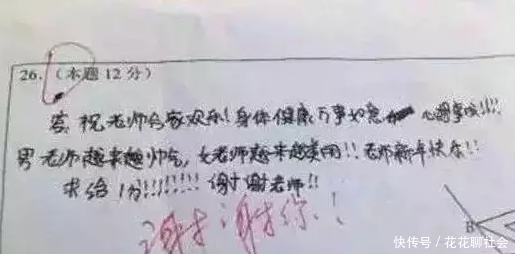 26.（本题12分）
答：祝老师合家欢乐！身体健康万事如意 心想事成!!!!
男老师越来越帅气，女老师越来越美丽!!老师新年快乐!!
求给1分!!!!!!!!谢谢老师!!
谢谢你！
B
快传号／花花聊社会